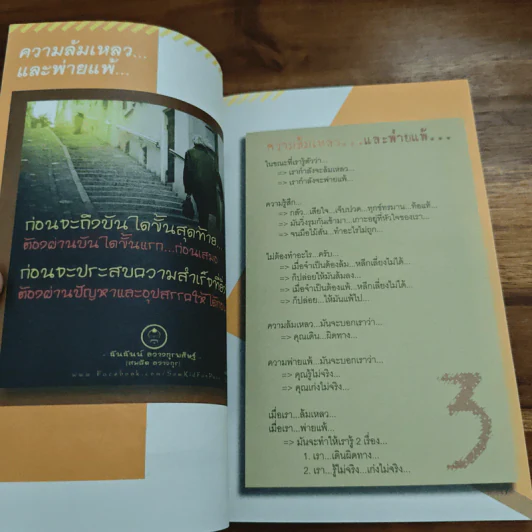 ความล้มเหลว...
และพ่ายแพ้...
ก่อนจะถึงบันไดขั้นสุดท้าย
ต้องผ่านบันไดขั้นแรก...ก่อนเสมอ
ก่อนจะประสบความสำเร็จที่
ต้องผ่านปัญหาและอุปสรรคให้ได้
ความล้มเหลว...และพ่ายแพ้...
ในขณะที่เรารู้ตัวว่า...
=> เรากำลังจะล้มเหลว...
=> เรากำลังจะพ่ายแพ้...
ความรู้สึก...
=> กลัว...เสียใจ...เจ็บปวด...ทุกข์ทรมาน...ท้อแท้...
=> มันวิ่งรุมกันเข้ามา...เกาะอยู่ที่หัวใจของเรา...
=> จนมือไม้สั่น...ทำอะไรไม่ถูก...
ไม่ต้องทำอะไร...ครับ...
=> เมื่อจำเป็นต้องล้ม...หลีกเลี่ยงไม่ได้...
=> ก็ปล่อยให้มันล้มลง...
=> เมื่อจำเป็นต้องแพ้...หลีกเลี่ยงไม่ได้...
=> ก็ปล่อย...ให้มันแพ้ไป...
ความล้มเหลว...มันจะบอกเราว่า...
=> คุณเดิน...ผิดทาง...
ความพ่ายแพ้...มันจะบอกเราว่า...
=> คุณรู้ไม่จริง...
=> คุณเก่งไม่จริง...
เมื่อเรา...ล้มเหลว...
เมื่อเรา...พ่ายแพ้...
=> มันจะทำให้เรารู้ 2 เรื่อง...
1. เรา...เดินผิดทาง...
2. เรา...รู้ไม่จริง...เก่งไม่จริง...
3